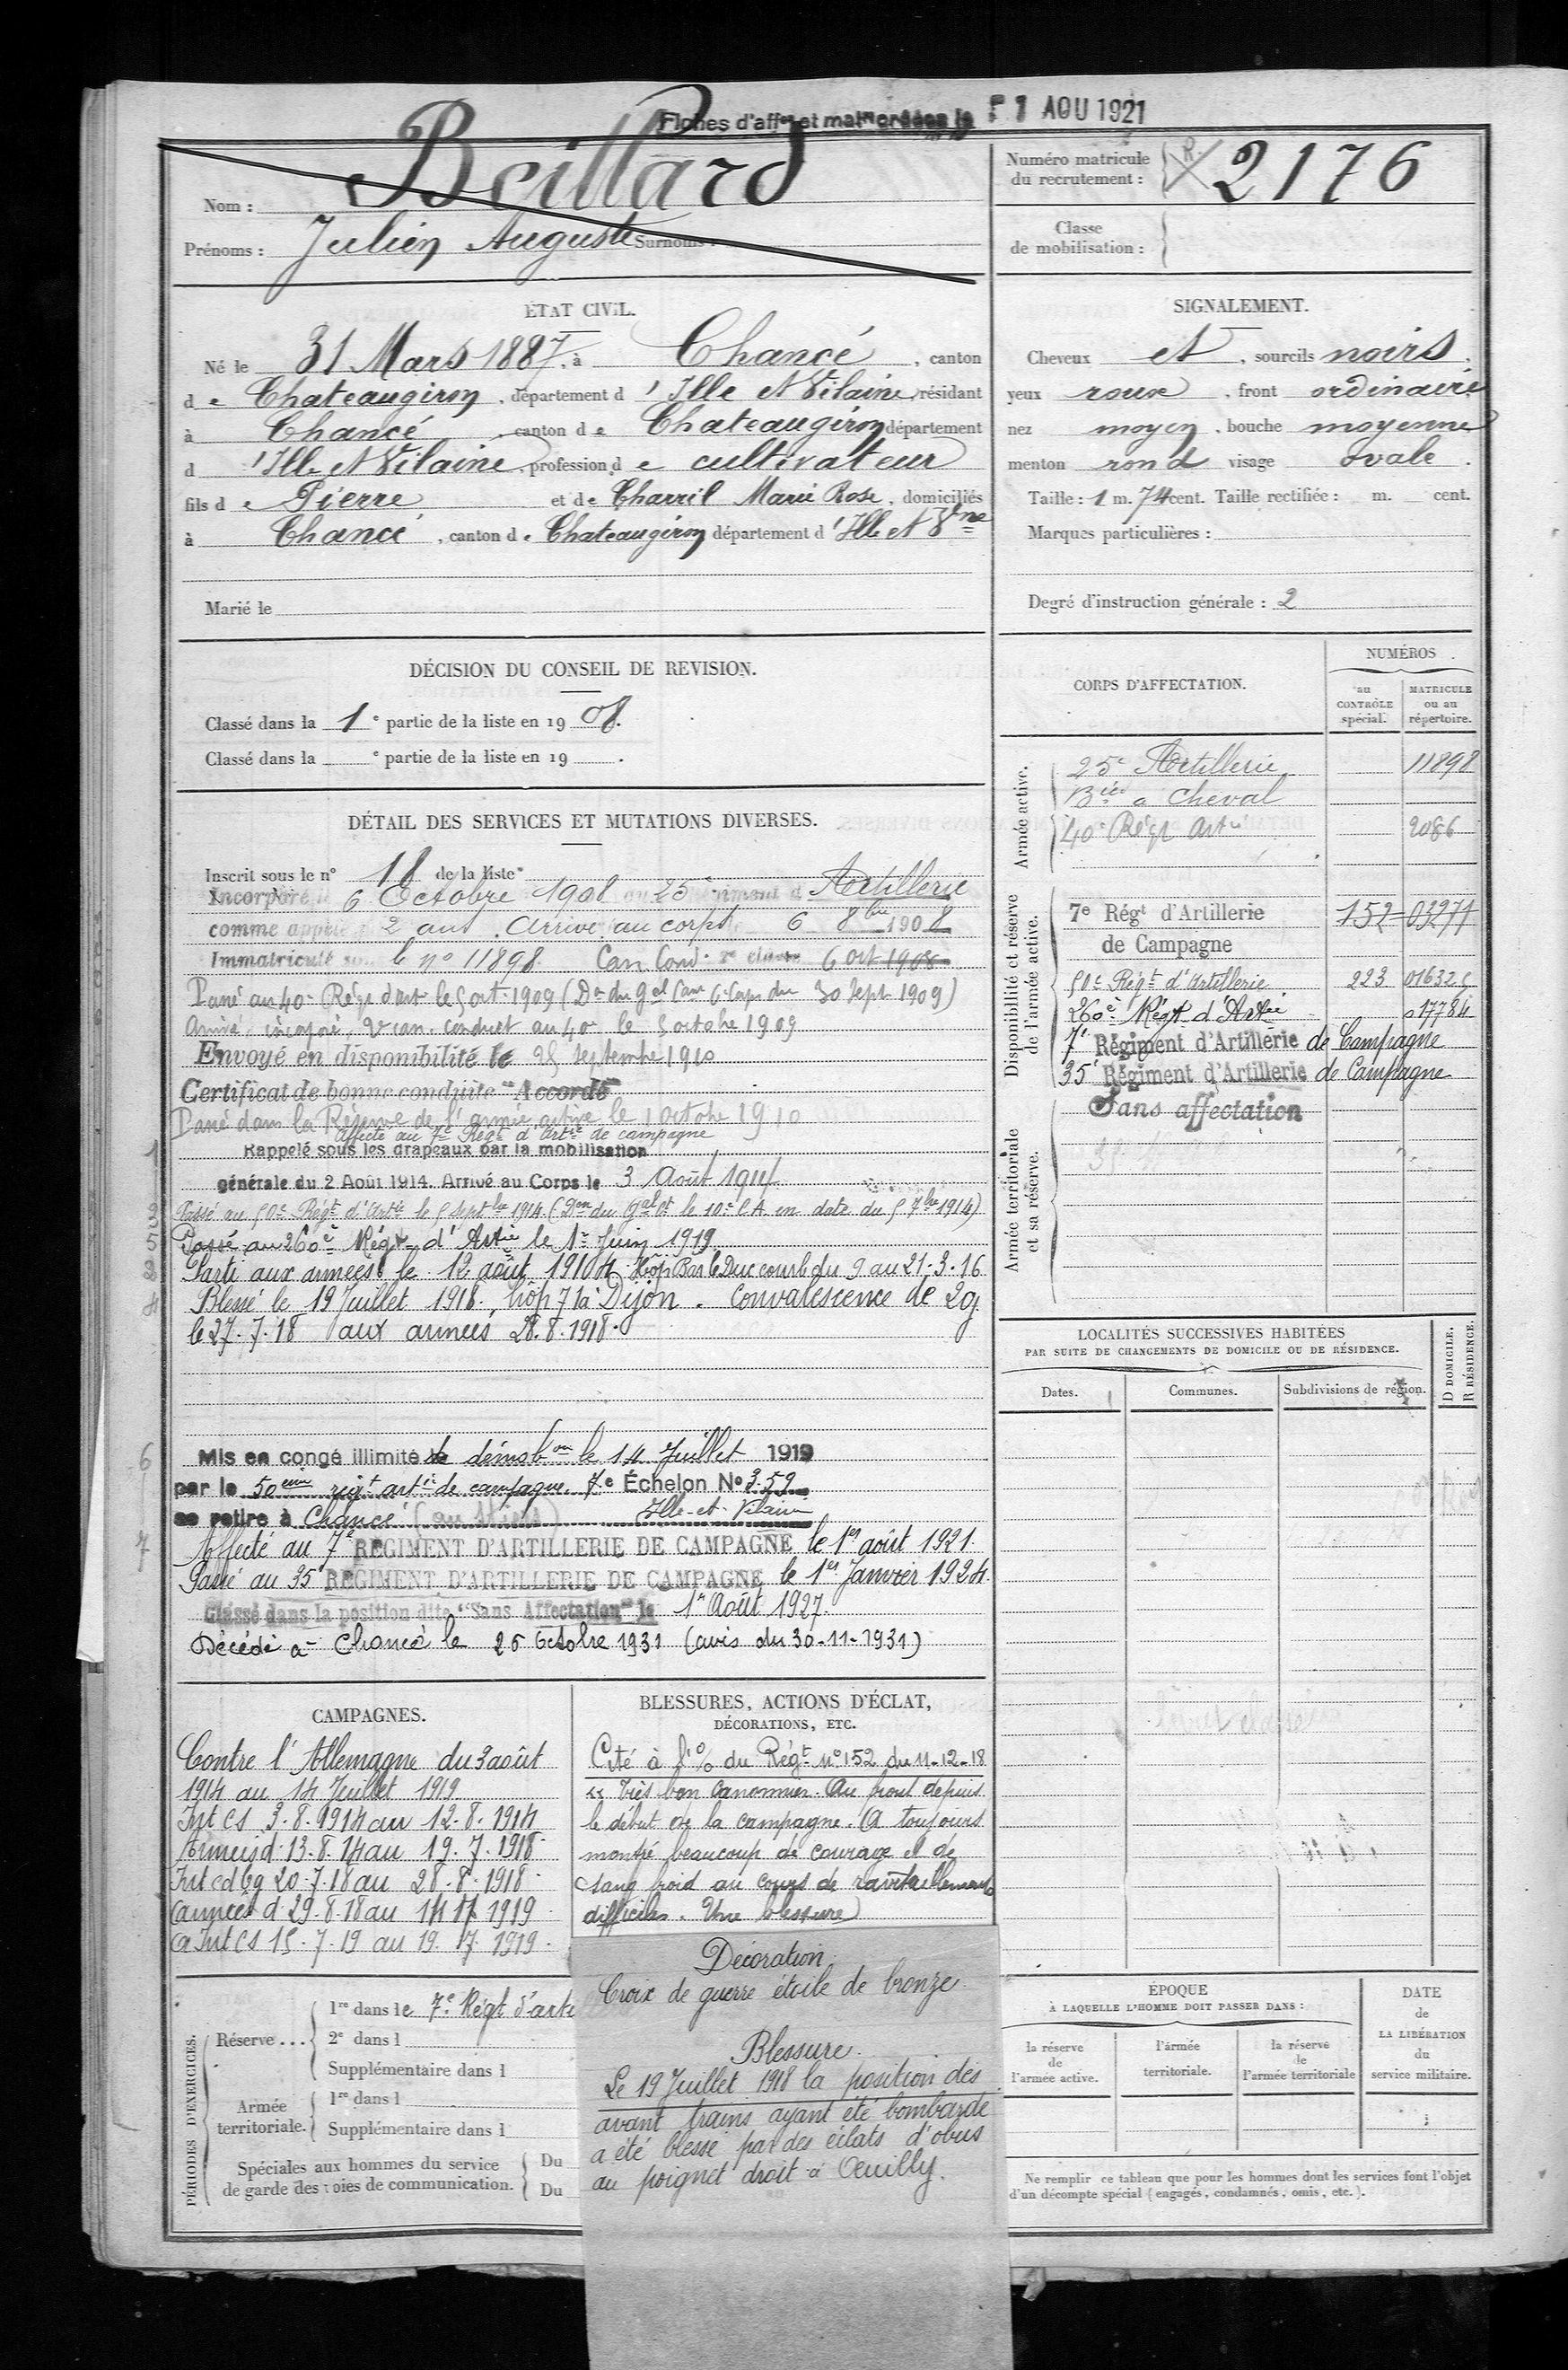 Fiches d'affon et matle créées le 1 AOU 1921
Nom : Beillard
Prénoms : Julien Auguste Surnoms :
Numéro matricule du recrutement : R. 2176
Classe de mobilisation :
ÉTAT CIVIL.
Né le 31 Mars 1887, à Chancé, canton
de Chateaugiron, département d'Ille et Vilaine, résidant
à Chancé, canton de Chateaugiron département
d'Ille et Vilaine, profession de cultivateur
fils de Pierre et de Charril Marie Rose, domiciliés
à Chancé, canton de Chateaugiron département d'Ille et Vne
Marié le
SIGNALEMENT.
Cheveux et, sourcils noirs.
yeux roux, front ordinaire
nez moyen, bouche moyenne
menton rond visage ovale.
Taille : 1 m. 74 cent. Taille rectifiée : m. cent.
Marques particulières :
Degré d'instruction générale : 2
DÉCISION DU CONSEIL DE REVISION.
Classé dans la 1e partie de la liste en 1908.
Classé dans la e partie de la liste en 19 .
DÉTAIL DES SERVICES ET MUTATIONS DIVERSES.
Inscrit sous le n° 18 de la liste
Incorporé 6 Octobre 1908 au 25e Régiment d'Artillerie
comme appelé 2 ans. Arrivé au corps 6 8bre 1908
Immatriculé sous le no 11898 Can Cond. 2e classe 6 oct 1908
Passé au 40e Régt d'art le 5 oct 1909 (Don du Gal Cant 6e Corps du 30 Sept 1909)
Arrivé, incorporé, 2e can. conduct au 40e le 5 octobre 1909
Envoyé en disponibilité le 25 septembre 1910
Certificat de bonne conduite "Accordé"
Passé dans la Réserve de l'armée active le 1 octobre 1910
Affecté au 7e Régt d'Artie de campagne
Rappelé sous les drapeaux par la mobilisation
générale du 2 Août 1914. Arrivé au Corps le 3 Août 1914
Passé au 50e Régt d'Artie le 5 Septbre 1914 (Don du Gal Ct le 10e C.A. en date du 5 7bre 1914)
Passé au 260e Régt d'Artie le 1er Juin 1919
Parti aux armées le 12 août 1914 Hôp Bar le Duc courb du 9 au 21-3-16
Blessé le 19 Juillet 1918. hôp 71 à Dijon. Convalescence de 20j
le 27.7.18 aux armées 28.8.1918.
Mis en congé illimité de démobon le 14 Juillet 1919
par le 50eme régt artie de campagne 7e Échelon No 359
se retire à Chancé Ille-et-Vilaine
Affecté au 7e RÉGIMENT D'ARTILLERIE DE CAMPAGNE le 1er août 1921
Passé au 35e RÉGIMENT D'ARTILLERIE DE CAMPAGNE le 1er Janvier 1924
Classé dans la position dite "Sans Affectation" le 1er Août 1927.
Décédé à Chancé le 26 Octobre 1931 (avis du 30-11-1931)
CORPS D'AFFECTATION.
NUMÉROS
au CONTRÔLE spécial.
MATRICULE ou au répertoire.
Armée active.
25e Artillerie 11898
Bies à Cheval
40e Régt Artie 2086
Disponibilité et réserve de l'armée active.
7e Régt d'Artillerie 152 03271
de Campagne
50e Régt d'Artillerie 223 01632
260e Régt d'Artie 017784
7e Régiment d'Artillerie de Campagne
35e Régiment d'Artillerie de Campagne
Armée territoriale et sa réserve.
Sans affectation
LOCALITÉS SUCCESSIVES HABITÉES
PAR SUITE DE CHANGEMENTS DE DOMICILE OU DE RÉSIDENCE.
Dates.
Communes.
Subdivisions de région.
D DOMICILE.
R RÉSIDENCE.
CAMPAGNES.
Contre l'Allemagne du 3 août
1914 au 14 Juillet 1919
Int CS 3.8.1914 au 12.8.1914
Armées d. 13.8.14 au 19.7.1918
Int cd bg 20.7.18 au 28.8.1918
(armées d 29.8.18 au 14 1919
Int CS 15.7.19 au 19.17.1919
BLESSURES, ACTIONS D'ÉCLAT,
DÉCORATIONS, ETC.
Cité à l'o/o du Régt no 152 du 11-12-18
"Très bon canonnier. Au front depuis
le début de la campagne. A toujours
montré beaucoup de courage et de
sang froid au cours de ravitaillements
difficiles. Une blessure)
Décoration
Croix de guerre étoile de bronze
Blessure.
Le 19 Juillet 1918 la position des
avant trains ayant été bombardé
a été blessé par des éclats d'obus
au poignet droit à Œuilly.
PÉRIODES D'EXERCICES.
Réserve...
1re dans le 7e Régt d'arti
2e dans l
Supplémentaire dans l
Armée territoriale.
1re dans l
Supplémentaire dans l
Spéciales aux hommes du service
de garde des voies de communication.
Du
Du
ÉPOQUE
À LAQUELLE L'HOMME DOIT PASSER DANS :
la réserve de l'armée active.
l'armée territoriale.
la réserve de l'armée territoriale
DATE de LA LIBÉRATION du service militaire.
Ne remplir ce tableau que pour les hommes dont les services font l'objet
d'un décompte spécial (engagés, condamnés, omis, etc.).